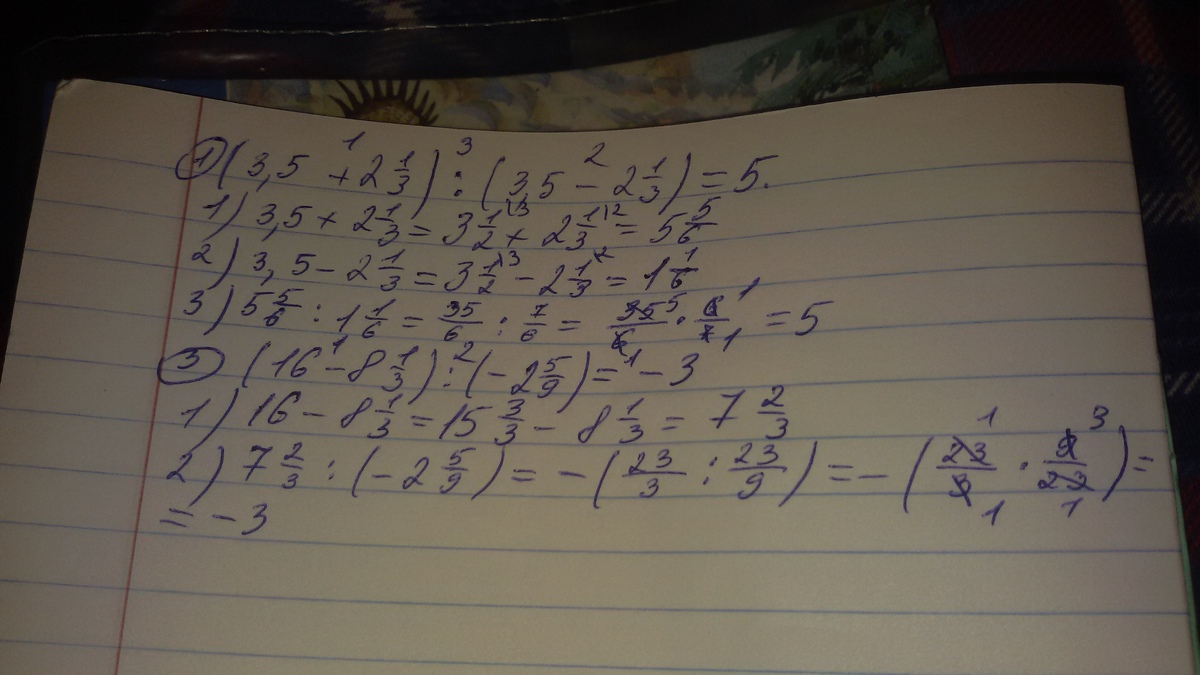 ① (3,5 +¹ 2 1/3) :³ (3,5 −² 2 1/3) = 5.
1) 3,5 + 2 1/3 = 3 1/2\3 + 2 1/3\2 = 5 5/6
2) 3,5 − 2 1/3 = 3 1/2\3 − 2 1/3\2 = 1 1/6
3) 5 5/6 : 1 1/6 = 35/6 : 7/6 = 35⁵/6₁ · 6¹/7₁ = 5
③ (16 −¹ 8 1/3) :² (− 2 5/9) = − 3
1) 16 − 8 1/3 = 15 3/3 − 8 1/3 = 7 2/3
2) 7 2/3 : (− 2 5/9) = − (23/3 : 23/9) = − (23¹/3₁ · 9³/23₁) =
= − 3